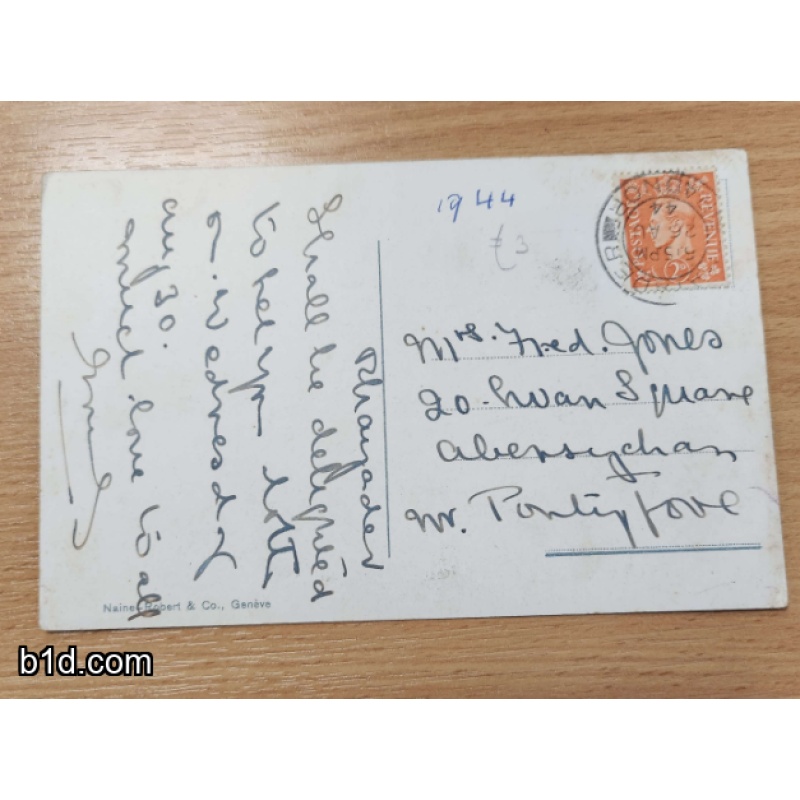 1944
£3
POSTAGE REVENUE
Mrs. Fred. Jones
20. Swan Square
Abersychan
Nr. Pontypool
Rhayader
Shall be delighted
to help
on Wednesday
30.
much love to all
Naine, Robert & Co., Genève
b1d.com